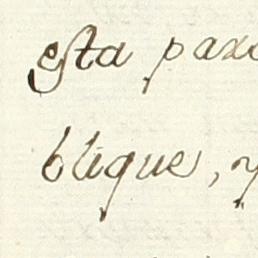 esta para
blique, y